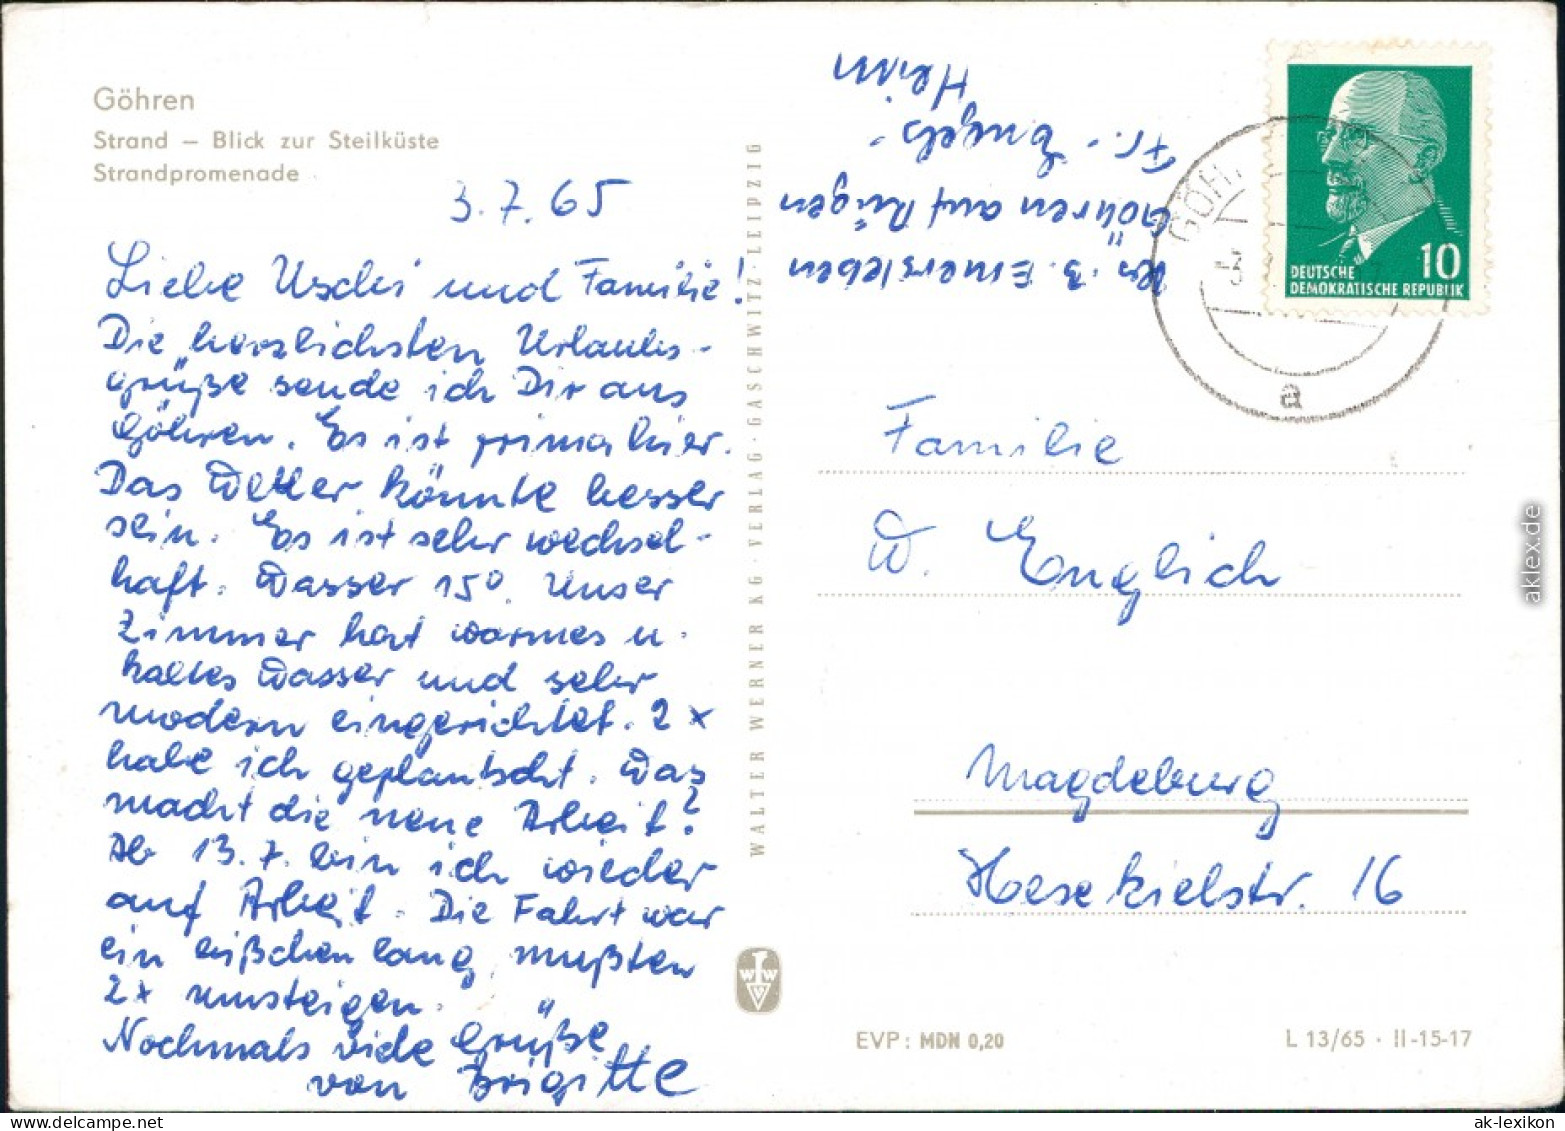 Göhren
Strand – Blick zur Steilküste
Strandpromenade
3.7.65
Liebe Uschi und Familie!
Die herzlichsten Urlaubs-
grüße sende ich Dir aus
Göhren. Es ist prima hier.
Das Wetter könnte besser
sein. Es ist sehr wechsel-
haft. Wasser 15°. Unser
Zimmer hat warmes u.
kaltes Wasser und sehr
modern eingerichtet. 2 x
habe ich geplantscht. Was
macht die neue Arbeit?
Ab 13.7. bin ich wieder
auf Arbeit. Die Fahrt war
ein bißchen lang, mußten
2x umsteigen.
Nochmals viele Grüße
von Brigitte
WALTER WERNER KG · VERLAG · GASCHWITZ · LEIPZIG
WWV
Heim
Fr. Engels
Göhren auf Rügen
DEUTSCHE
DEMOKRATISCHE REPUBLIK
10
GÖH
a
Familie
W. Englich
Magdeburg
Hesekielstr. 16
EVP: MDN 0,20
L 13/65 · II-15-17
aklex.de
ak-lexikon